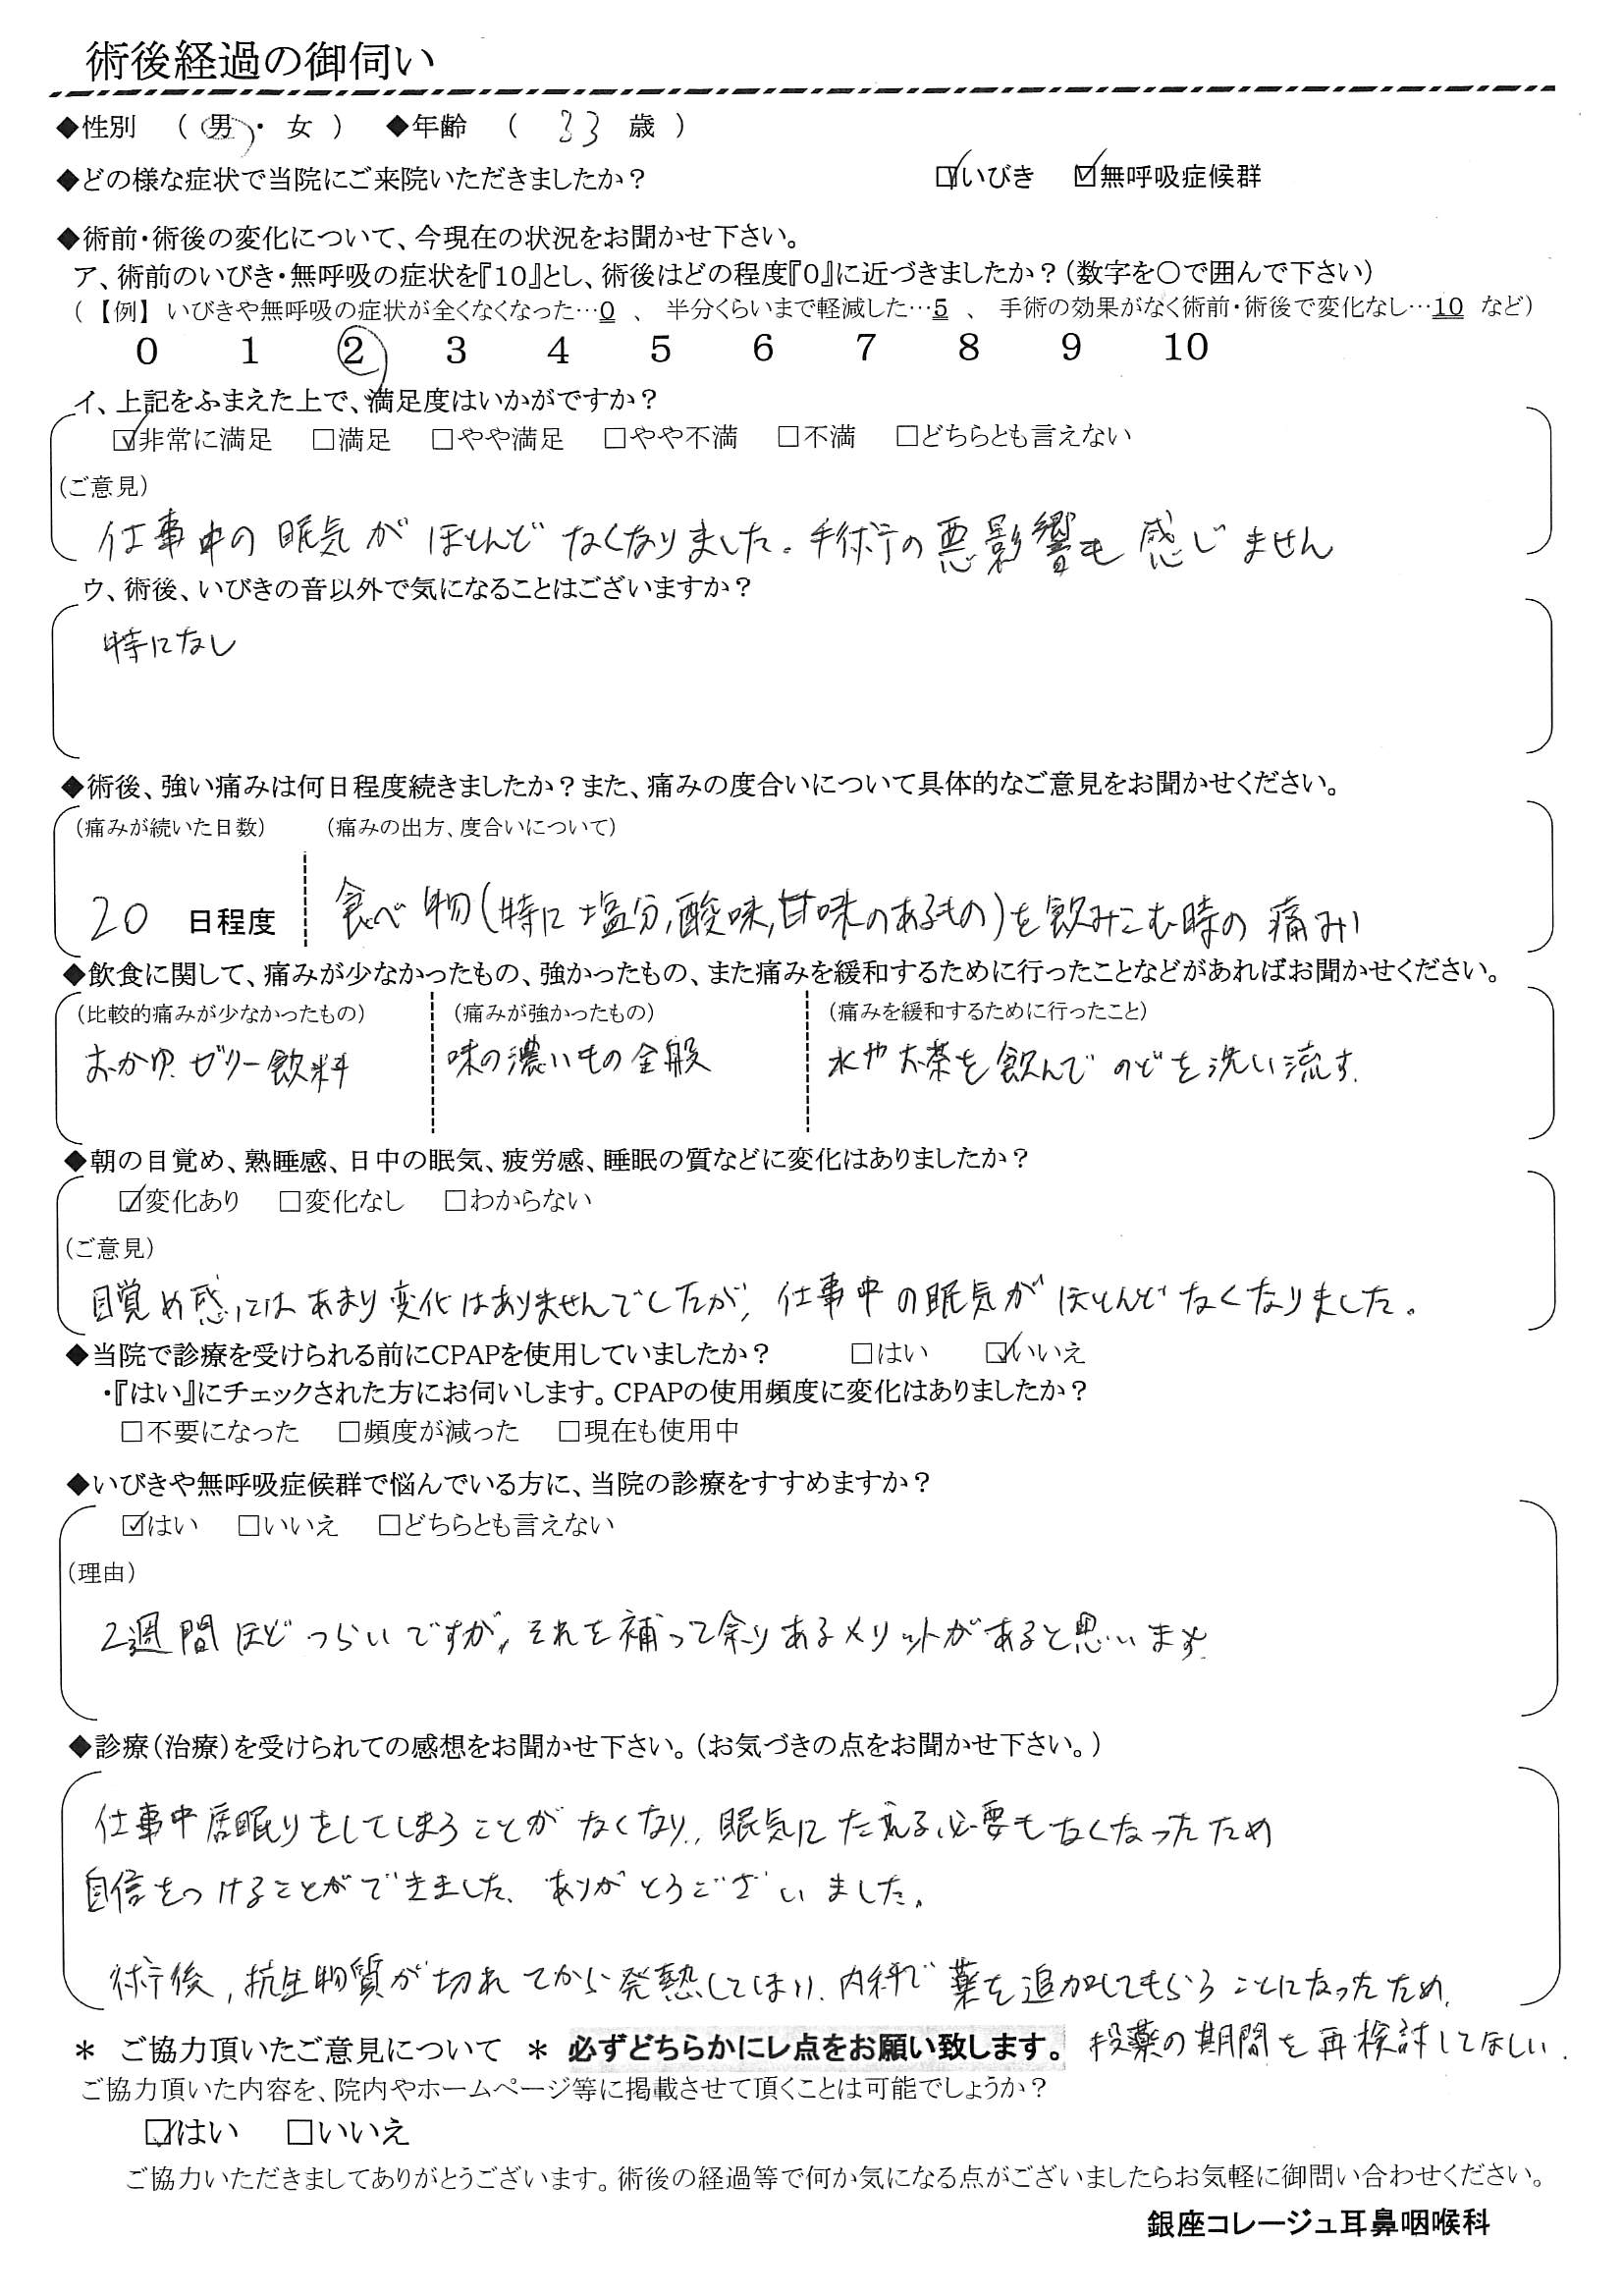 術後経過の御伺い
◆性別 （ 男 ・ 女 ） ◆年齢 （ 33 歳 ）
◆どの様な症状で当院にご来院いただきましたか？ ☑いびき ☑無呼吸症候群
◆術前・術後の変化について、今現在の状況をお聞かせ下さい。
ア、術前のいびき・無呼吸の症状を『10』とし、術後はどの程度『0』に近づきましたか？（数字を○で囲んで下さい）
（ 【例】 いびきや無呼吸の症状が全くなくなった…0 、 半分くらいまで軽減した…5 、 手術の効果がなく術前・術後で変化なし…10 など）
0 1 2 3 4 5 6 7 8 9 10
イ、上記をふまえた上で、満足度はいかがですか？
☑非常に満足 □満足 □やや満足 □やや不満 □不満 □どちらとも言えない
（ご意見）
仕事中の眠気がほとんどなくなりました。手術の悪影響も感じません
ウ、術後、いびきの音以外で気になることはございますか？
特になし
◆術後、強い痛みは何日程度続きましたか？また、痛みの度合いについて具体的なご意見をお聞かせください。
（痛みが続いた日数） （痛みの出方、度合いについて）
20 日程度 食べ物(特に塩分,酸味,甘味のあるもの)を飲みこむ時の痛み
◆飲食に関して、痛みが少なかったもの、強かったもの、また痛みを緩和するために行ったことなどがあればお聞かせください。
（比較的痛みが少なかったもの） （痛みが強かったもの） （痛みを緩和するために行ったこと）
おかゆ.ゼリー飲料 味の濃いもの全般 水やお茶を飲んでのどを洗い流す.
◆朝の目覚め、熟睡感、日中の眠気、疲労感、睡眠の質などに変化はありましたか？
☑変化あり □変化なし □わからない
（ご意見）
目覚め感にはあまり変化はありませんでしたが,仕事中の眠気がほとんどなくなりました。
◆当院で診療を受けられる前にCPAPを使用していましたか？ □はい ☑いいえ
・『はい』にチェックされた方にお伺いします。CPAPの使用頻度に変化はありましたか？
□不要になった □頻度が減った □現在も使用中
◆いびきや無呼吸症候群で悩んでいる方に、当院の診療をすすめますか？
☑はい □いいえ □どちらとも言えない
（理由）
2週間ほどつらいですが,それを補って余りあるメリットがあると思います.
◆診療（治療）を受けられての感想をお聞かせ下さい。（お気づきの点をお聞かせ下さい。）
仕事中居眠りをしてしまうことがなくなり,眠気にたえる必要もなくなったため
自信をつけることができました、ありがとうございました。
術後,抗生物質が切れてから発熱してしまい.内科で薬を追加してもらうことになったため,
投薬の期間を再検討してほしい.
＊ ご協力頂いたご意見について ＊ 必ずどちらかにレ点をお願い致します。
ご協力頂いた内容を、院内やホームページ等に掲載させて頂くことは可能でしょうか？
☑はい □いいえ
ご協力いただきましてありがとうございます。術後の経過等で何か気になる点がございましたらお気軽に御問い合わせください。
銀座コレージュ耳鼻咽喉科